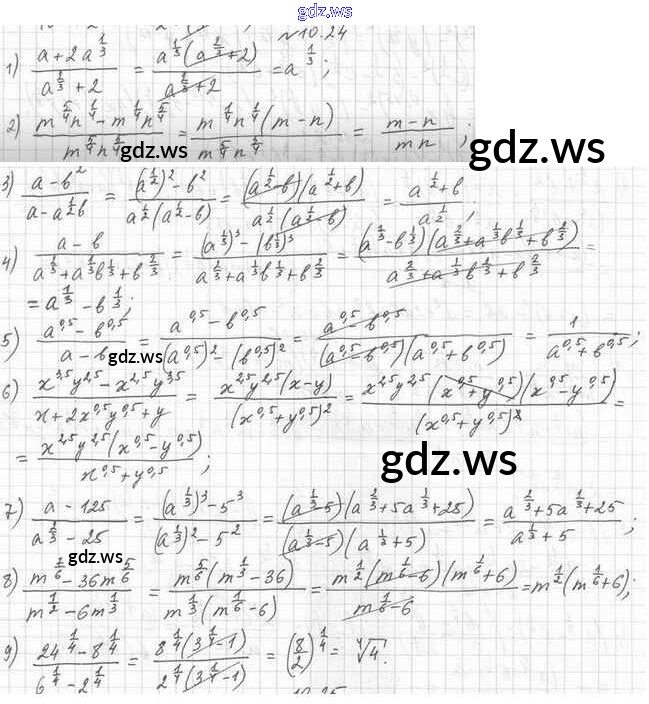 gdz.ws
№10.24
1) (a+2a^(1/3))/(a^(2/3)+2) = (a^(1/3)(a^(2/3)+2))/(a^(2/3)+2) = a^(1/3);
2) (m^(5/4)n^(1/4) - m^(1/4)n^(5/4))/(m^(5/4)n^(5/4)) = (m^(1/4)n^(1/4)(m-n))/(m^(5/4)n^(5/4)) = (m-n)/(mn);
gdz.ws
gdz.ws
3) (a-b^2)/(a-a^(1/2)b) = ((a^(1/2))^2-b^2)/(a^(1/2)(a^(1/2)-b)) = ((a^(1/2)-b)(a^(1/2)+b))/(a^(1/2)(a^(1/2)-b)) = (a^(1/2)+b)/(a^(1/2));
4) (a-b)/(a^(2/3)+a^(1/3)b^(1/3)+b^(2/3)) = ((a^(1/3))^3-(b^(1/3))^3)/(a^(2/3)+a^(1/3)b^(1/3)+b^(2/3)) = ((a^(1/3)-b^(1/3))(a^(2/3)+a^(1/3)b^(1/3)+b^(2/3)))/(a^(2/3)+a^(1/3)b^(1/3)+b^(2/3)) =
= a^(1/3)-b^(1/3);
5) (a^0,5-b^0,5)/(a-b) = (a^0,5-b^0,5)/((a^0,5)^2-(b^0,5)^2) = (a^0,5-b^0,5)/((a^0,5-b^0,5)(a^0,5+b^0,5)) = 1/(a^0,5+b^0,5);
gdz.ws
gdz.ws
6) (x^3,5y^2,5-x^2,5y^3,5)/(x+2x^0,5y^0,5+y) = (x^2,5y^2,5(x-y))/((x^0,5+y^0,5)^2) = (x^2,5y^2,5(x^0,5+y^0,5)(x^0,5-y^0,5))/((x^0,5+y^0,5)^2) =
= (x^2,5y^2,5(x^0,5-y^0,5))/(x^0,5+y^0,5);
gdz.ws
7) (a-125)/(a^(2/3)-25) = ((a^(1/3))^3-5^3)/((a^(1/3))^2-5^2) = ((a^(1/3)-5)(a^(2/3)+5a^(1/3)+25))/((a^(1/3)-5)(a^(1/3)+5)) = (a^(2/3)+5a^(1/3)+25)/(a^(1/3)+5);
gdz.ws
8) (m^(7/6)-36m^(5/6))/(m^(1/2)-6m^(1/3)) = (m^(5/6)(m^(1/3)-36))/(m^(1/3)(m^(1/6)-6)) = (m^(1/2)(m^(1/6)-6)(m^(1/6)+6))/(m^(1/6)-6) = m^(1/2)(m^(1/6)+6);
9) (24^(1/4)-8^(1/4))/(6^(1/4)-2^(1/4)) = (8^(1/4)(3^(1/4)-1))/(2^(1/4)(3^(1/4)-1)) = (8/2)^(1/4) = ⁴√4.
gdz.ws